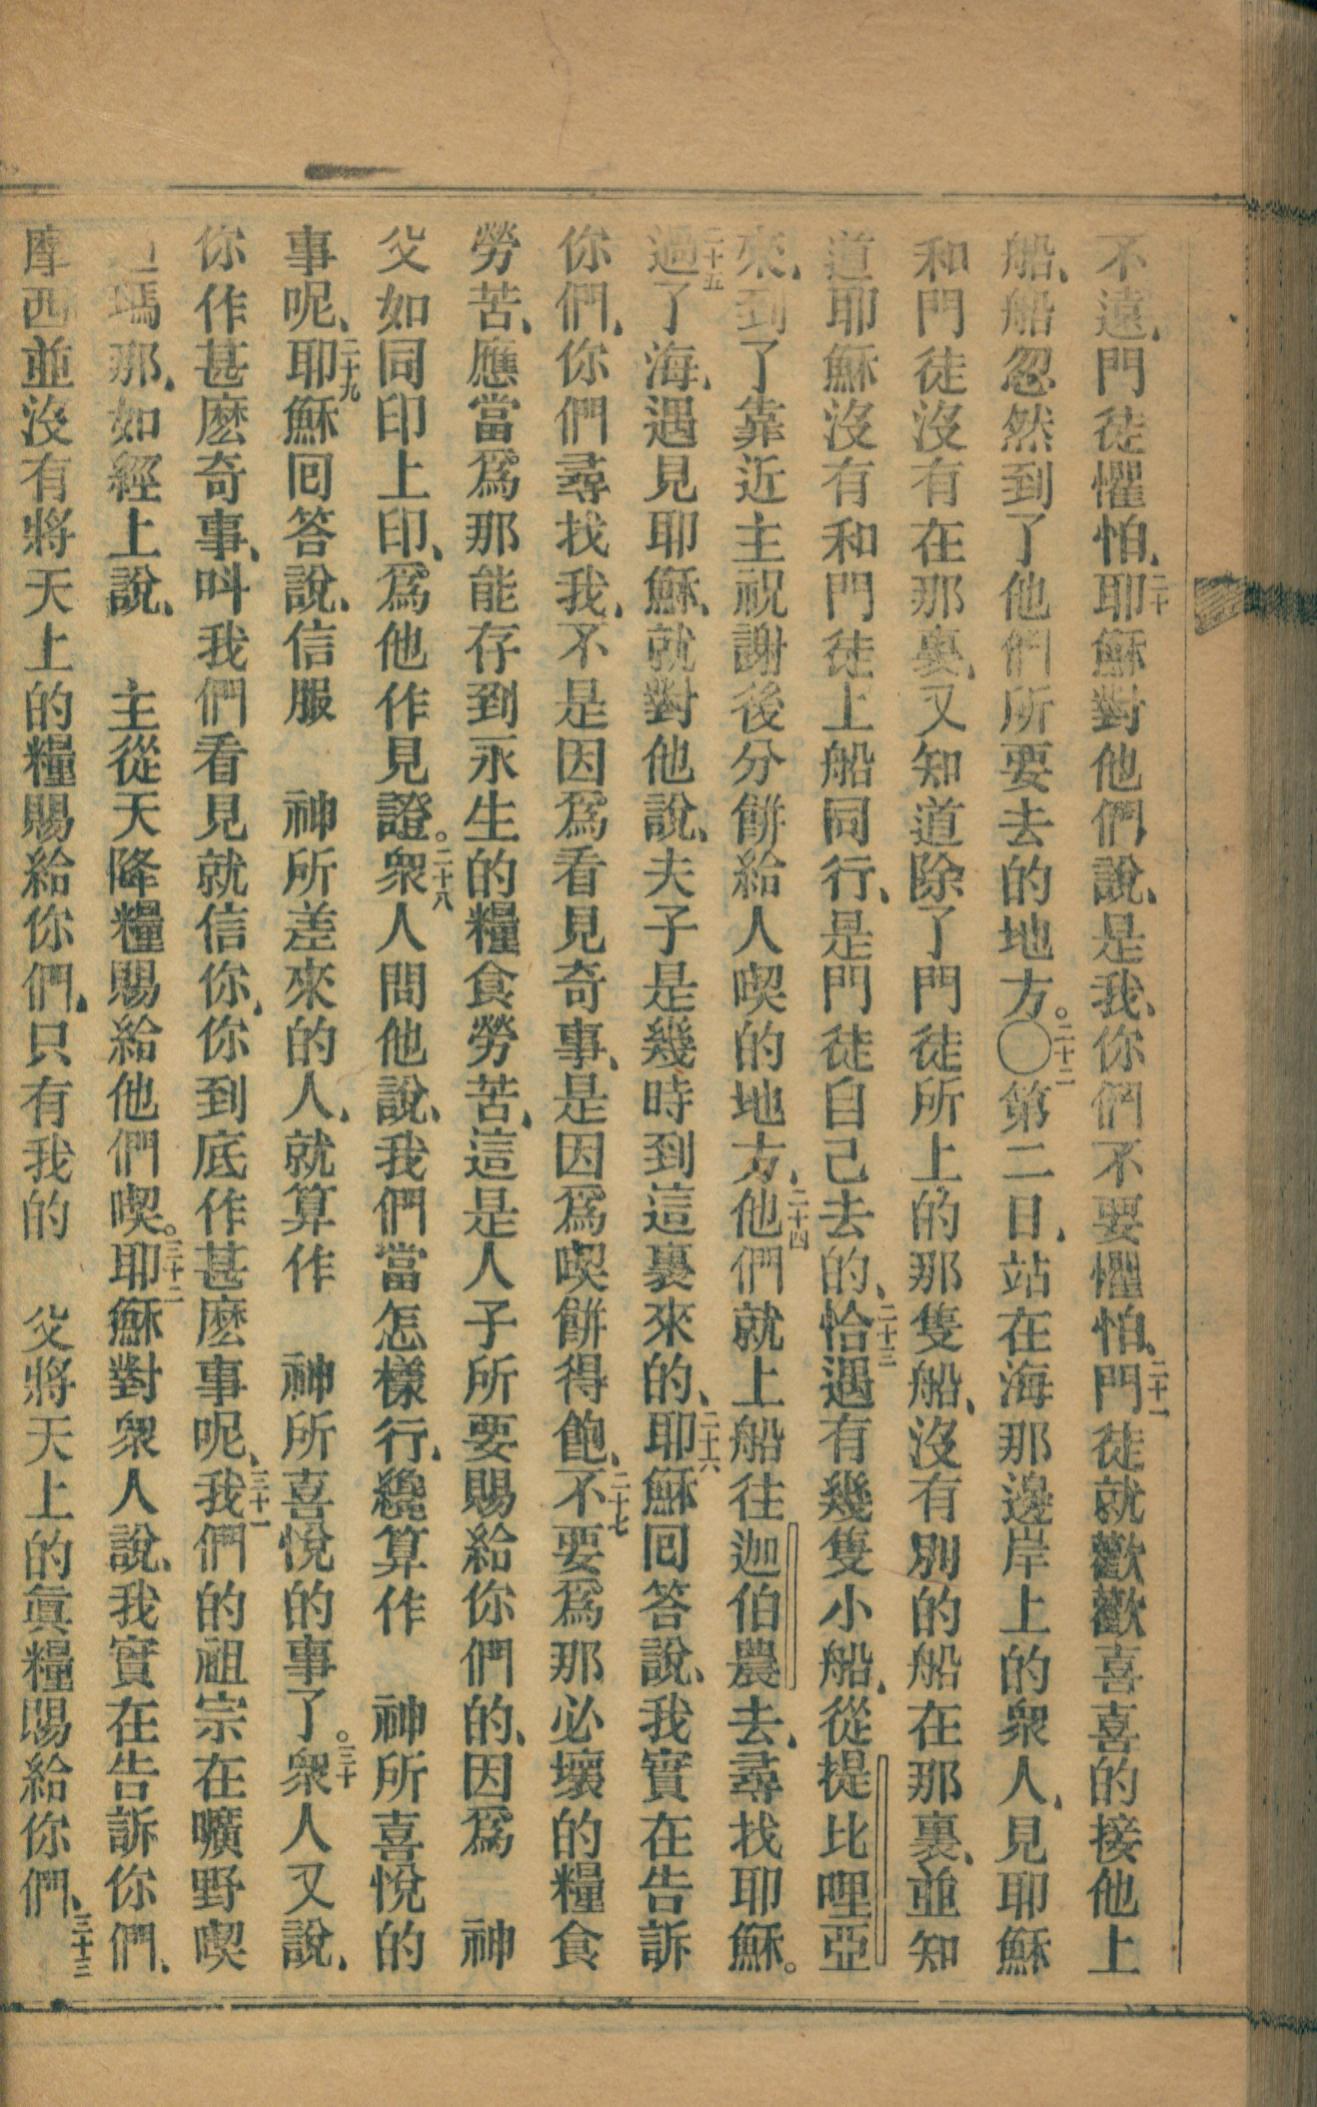 不遠、門徒懼怕、二十耶穌對他們說、是我、你們不要懼怕、二十一門徒就歡歡喜喜的接他上
船、船忽然到了他們所要去的地方。〇二十二第二日、站在海那邊岸上的衆人、見耶穌
和門徒沒有在那裏、又知道除了門徒所上的那隻船、沒有別的船在那裏、並知
道耶穌沒有和門徒上船同行、是門徒自己去的、二十三恰遇有幾隻小船、從提比哩亞
來、到了靠近主祝謝後分餅給人喫的地方、二十四他們就上船往迦伯農去、尋找耶穌。
二十五過了海、遇見耶穌、就對他說、夫子是幾時到這裏來的、二十六耶穌回答說、我實在告訴
你們、你們尋找我、不是因爲看見奇事、是因爲喫餅得飽、二十七不要爲那必壞的糧食
勞苦、應當爲那能存到永生的糧食勞苦、這是人子所要賜給你們的、因爲　神
父如同印上印、爲他作見證。二十八衆人問他說、我們當怎樣行、纔算作　神所喜悅的
事呢、二十九耶穌回答說、信服　神所差來的人、就算作　神所喜悅的事了。三十衆人又說、
你作甚麽奇事、呌我們看見就信你、你到底作甚麽事呢、三十一我們的祖宗在曠野喫
瑪那、如經上說、　主從天降糧賜給他們喫。三十二耶穌對衆人說、我實在告訴你們、
摩西並沒有將天上的糧賜給你們、只有我的　父將天上的眞糧賜給你們、三十三